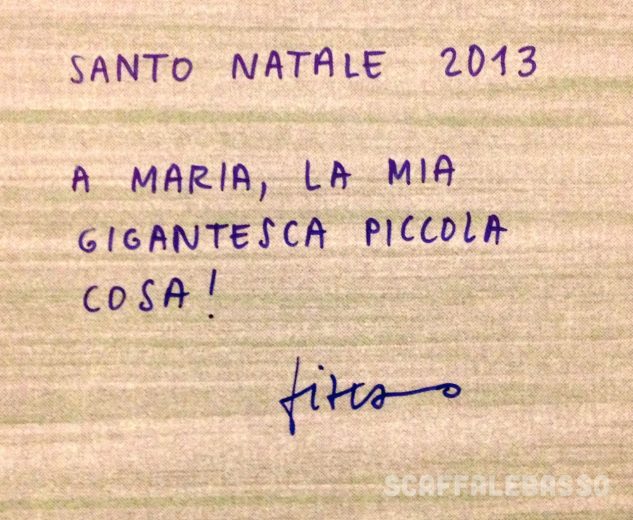 SANTO NATALE 2013
A MARIA, LA MIA
GIGANTESCA PICCOLA
COSA!
SCAFFALEBASSO